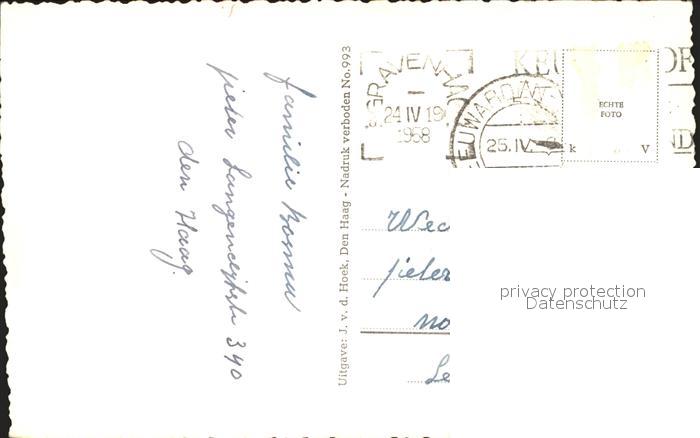 familie Bosma
pieter Langendijkstr 340
den Haag.
Uitgave: J. v. d. Hoek, Den Haag - Nadruk verboden No. 993
'S GRAVENHAG
24 IV 19
1958
LEEUWARDEN
25.IV
KEU
ECHTE
FOTO
k
V
Wec
pieter
no
Le
privacy protection
Datenschutz